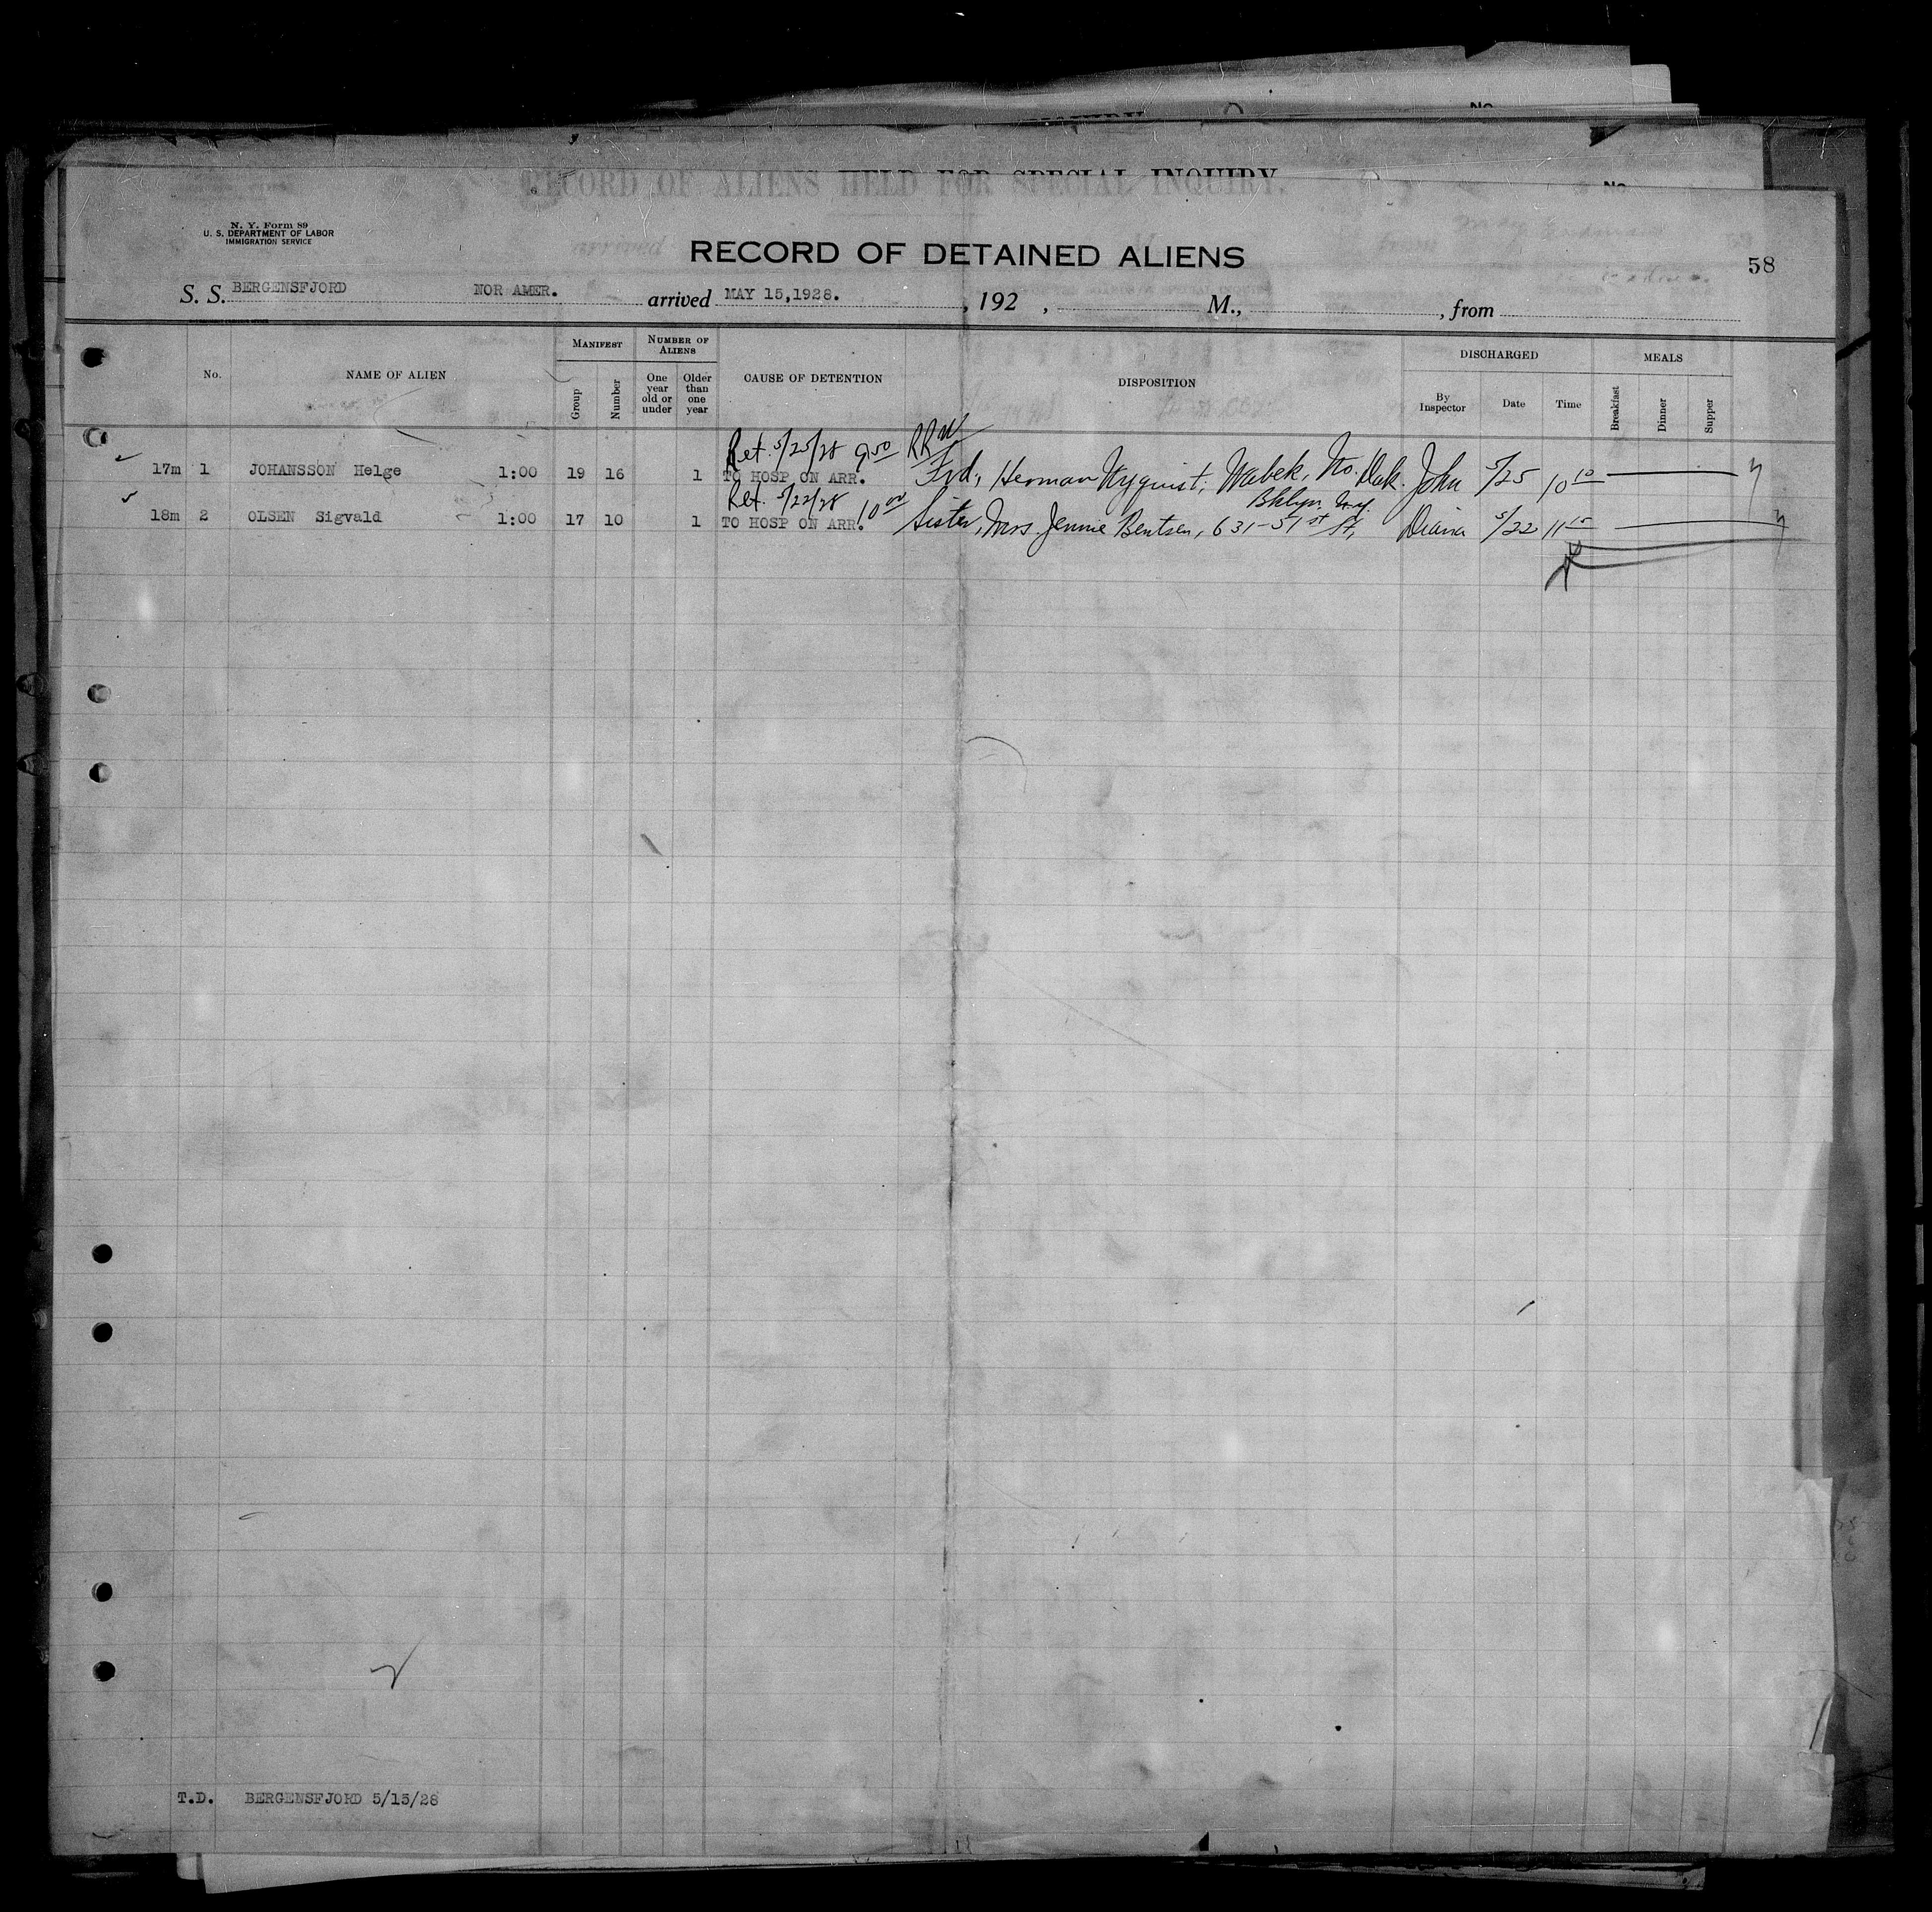 RECORD OF ALIENS HELD FOR SPECIAL INQUIRY.
No
N. Y. Form 89
U. S. DEPARTMENT OF LABOR
IMMIGRATION SERVICE
RECORD OF DETAINED ALIENS
58
S. S. BERGENSFJORD NOR AMER. arrived MAY 15,1928. , 192 , M., , from
No. NAME OF ALIEN MANIFEST Group Number NUMBER OF ALIENS One year old or under Older than one year CAUSE OF DETENTION DISPOSITION DISCHARGED By Inspector Date Time MEALS Breakfast Dinner Supper
Ret. 5/25/28 9 50 RR
17m 1 JOHANSSON Helge 1:00 19 16 1 TO HOSP ON ARR. Frd, Herman Nyquist, Wabek, No. Dak. John 5/25 10 10
Ret. 5/22/28 10 00 Bklyn. N.Y.
18m 2 OLSEN Sigvald 1:00 17 10 1 TO HOSP ON ARR. Sister, Mrs. Jennie Bentsen, 631-51st St, Diana 5/22 11 15
T.D. BERGENSFJORD 5/15/28